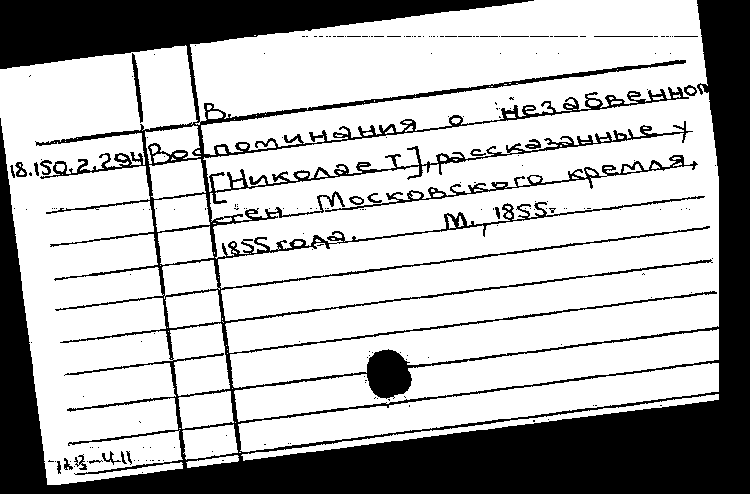 В.
18.150.2.294 Воспоминания о незабвенном
[Николае I], рассказанные у
стен Московского кремля,
1855 года. М., 1855.